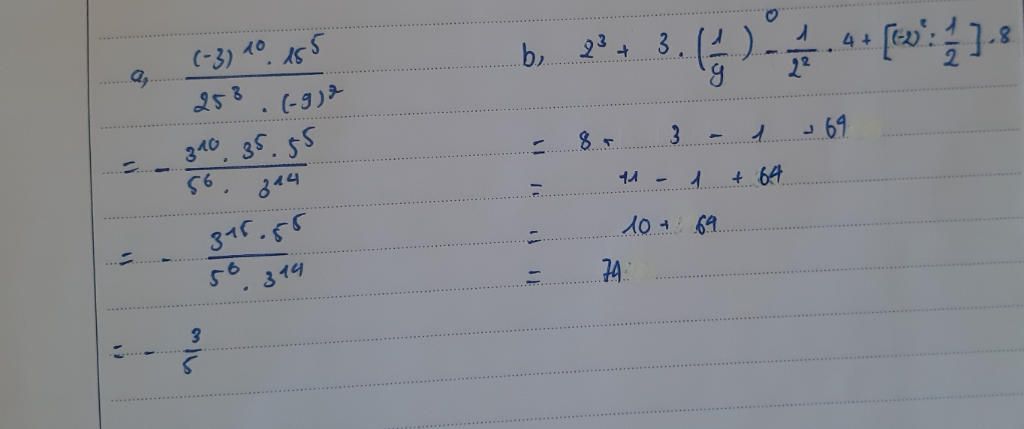 a, \frac{(-3)^{10} . 15^5}{25^3 . (-9)^7}
= - \frac{3^{10} . 3^5 . 5^5}{5^6 . 3^{14}}
= - \frac{3^{15} . 5^5}{5^6 . 3^{14}}
= - \frac{3}{5}
b, 2^3 + 3 . (\frac{1}{9})^0 - \frac{1}{2^2} . 4 + [(-2)^2 : \frac{1}{2}] . 8
= 8 + 3 - 1 + 64
= 11 - 1 + 64
= 10 + 64
= 74